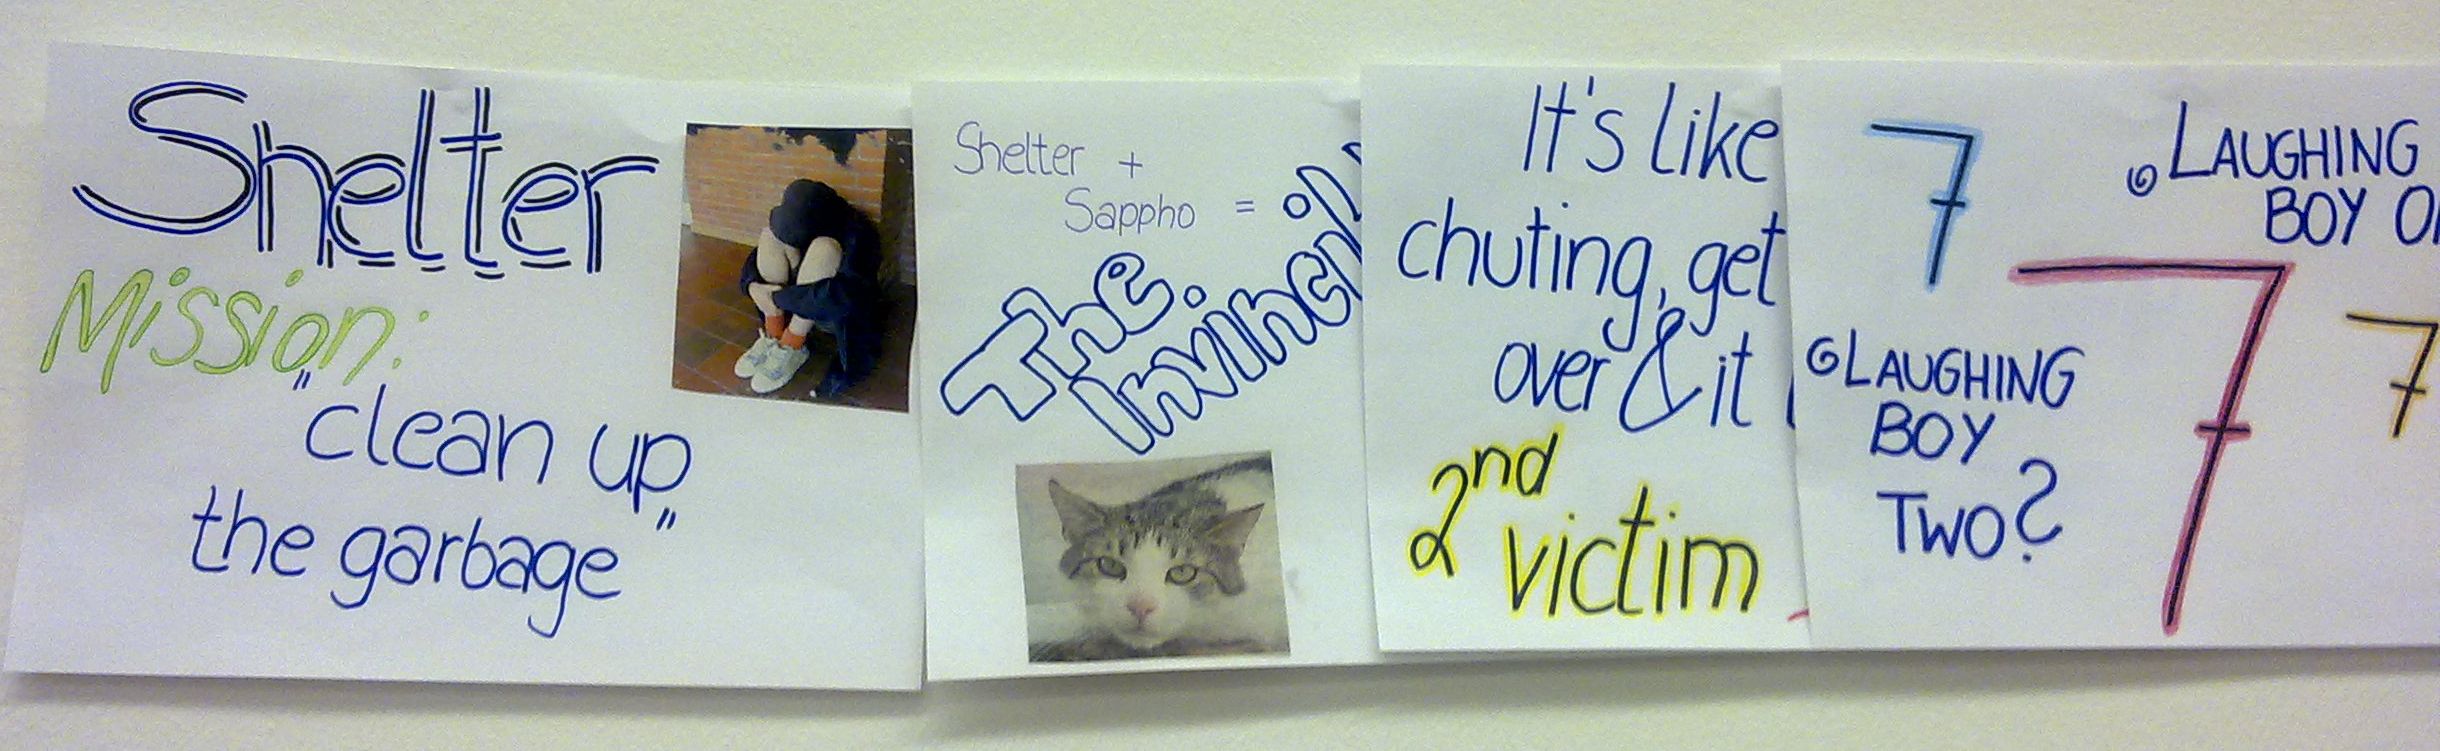 Shelter
Mission:
"clean up
the garbage"
Shelter +
Sappho =
The
It's like
chuting, get
over & it
2nd
victim
7
LAUGHING
BOY
7
7
LAUGHING
BOY
TWO?